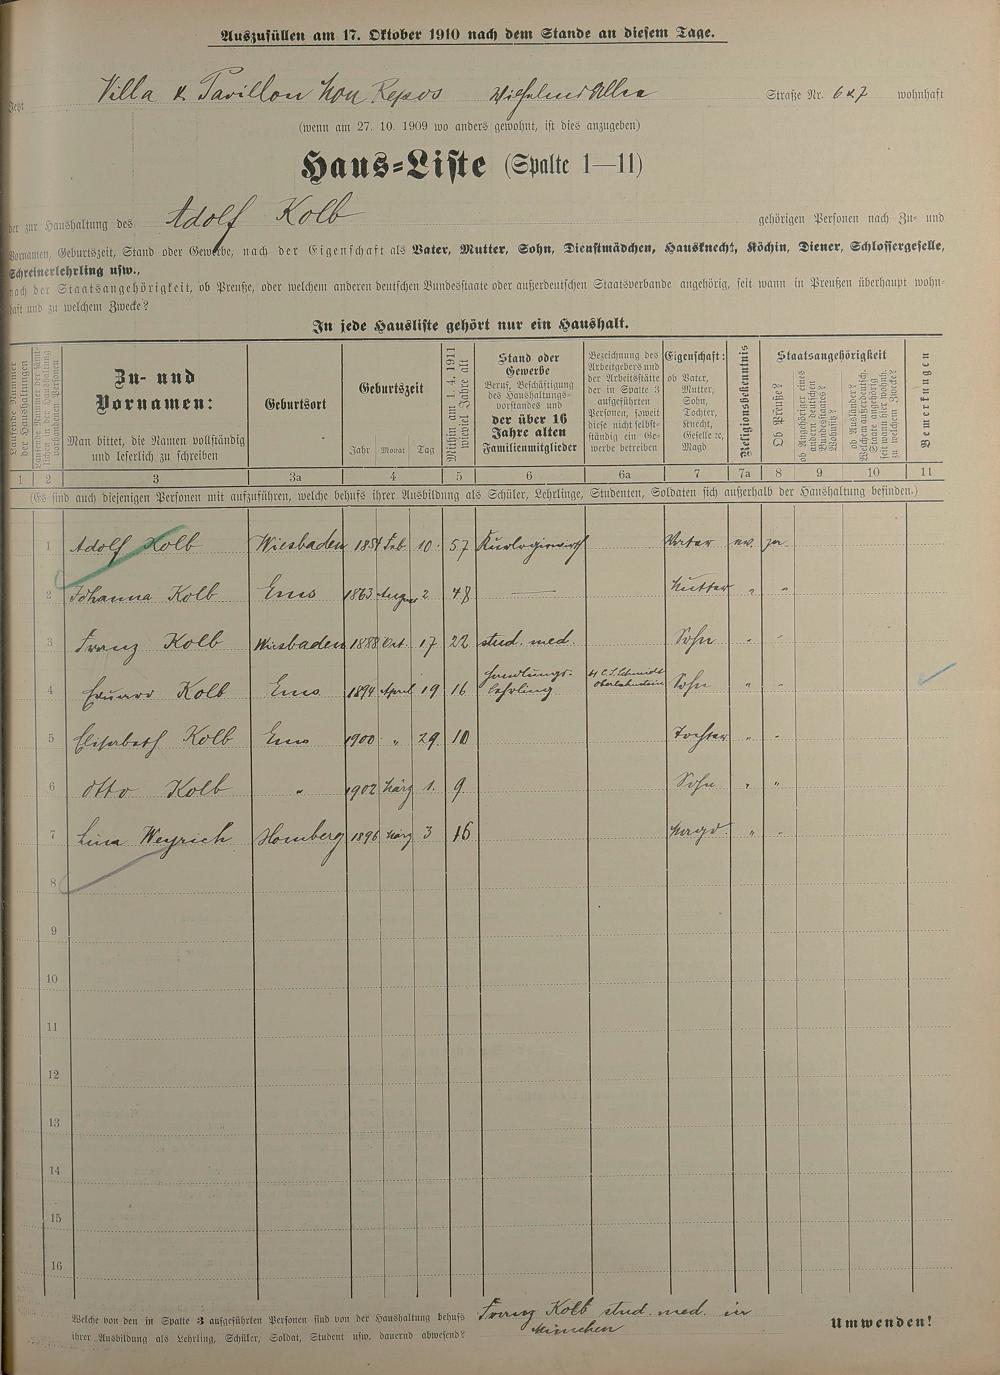 Auszufüllen am 17. Oktober 1910 nach dem Stande an diesem Tage.
Jetzt Villa & Pavillon Mon Repos Wilhelms Allee Straße Nr. 6 & 7 wohnhaft
(wenn am 27. 10. 1909 wo anders gewohnt, ist dies anzugeben)
Haus=Liste (Spalte 1—11)
der zur Haushaltung des Adolf Kolb gehörigen Personen nach Zu- und
Vornamen, Geburtszeit, Stand oder Gewerbe, nach der Eigenschaft als Vater, Mutter, Sohn, Dienstmädchen, Hausknecht, Köchin, Diener, Schlossergeselle,
Schreinerlehrling usw.,
nach der Staatsangehörigkeit, ob Preuße, oder welchem anderen deutschen Bundesstaate oder außerdeutschen Staatsverbande angehörig, seit wann in Preußen überhaupt wohn-
haft und zu welchem Zwecke?
In jede Hausliste gehört nur ein Haushalt.
Laufende Nummer
der Haushaltungen
Laufende Nummer der sämt-
lichen in der Haushaltung
vorhandenen Personen
Zu- und
Vornamen:
Man bittet, die Namen vollständig
und leserlich zu schreiben
Geburtsort
Geburtszeit
Jahr Monat Tag
Mithin am 1. 4. 1911
wieviel Jahre alt
Stand oder
Gewerbe
Beruf, Beschäftigung
des Haushaltungs-
vorstandes und
der über 16
Jahre alten
Familienmitglieder
Bezeichnung des
Arbeitgebers und
der Arbeitsstätte
der in Spalte 3
aufgeführten
Personen, soweit
diese nicht selbst-
ständig ein Ge-
werbe betreiben
Eigenschaft:
ob Vater,
Mutter,
Sohn,
Tochter,
Knecht,
Geselle ꝛc,
Magd
Religionsbekenntnis
Staatsangehörigkeit
Ob Preuße?
ob Angehöriger eines
andern deutschen
Bundesstaates?
Wohnsitz?
ob Ausländer?
Welchem außerdeutsch.
Staate angehörig
seit wann hier wohnh.
zu welchem Zwecke?
Bemerkungen
1 2 3 3a 4 5 6 6a 7 7a 8 9 10 11
(Es sind auch diejenigen Personen mit aufzuführen, welche behufs ihrer Ausbildung als Schüler, Lehrlinge, Studenten, Soldaten sich außerhalb der Haushaltung befinden.)
1 Adolf Kolb Wiesbaden 1854 Feb 10. 57 Kurlogierwirt Vater ev. ja
2 Johanna Kolb Ems 1863 August 2 48 — Mutter " "
3 Franz Kolb Wiesbaden 1888 Oct. 17 22 stud. med. Sohn " "
4 Eduard Kolb Ems 1894 April 19 16 Handlungs-lehrling C. S. Schmidt Oberlahnstein Sohn " "
5 Elisabeth Kolb Ems 1900 " 29. 10 Tochter " "
6 Otto Kolb " 1902 März 1. 9 Sohn " "
7 Lina Weyrich Homberg 1896 März 3 15 Magd " "
8
9
10
11
12
13
14
15
16
Welche von den in Spalte 3 aufgeführten Personen sind von der Haushaltung behufs
ihrer Ausbildung als Lehrling, Schüler, Soldat, Student usw. dauernd abwesend?
Franz Kolb stud. med. in
München
Umwenden!